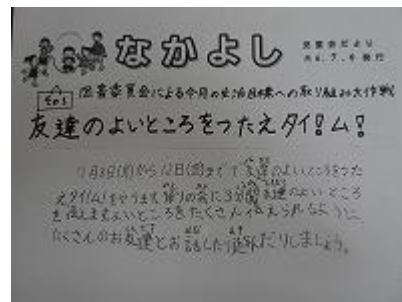 なかよし
児童会だより
R6.7.9 発行
その1
図書委員会による今月の生活目標への取り組み大作戦
友達のよいところをつたえタイ!ム!
7月8日(月)から12日(金)まで「友達のよいところをつた
えタイ!ム!をやります。帰りの会に3分間友達のよいところ
を伝えます。よいところをたくさん伝えられるように
たくさんのお友達とお話したり遊んだりしましょう。